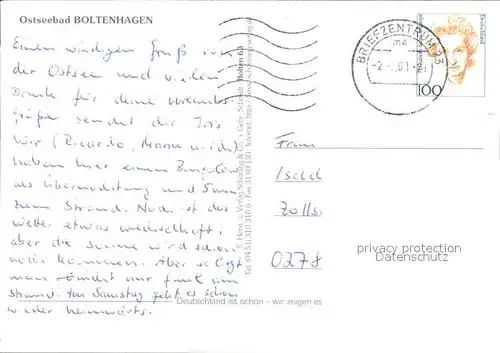 Ostseebad BOLTENHAGEN
Einen windigen Gruß von
der Ostsee und vielen
Dank für deine Urlaubs-
grüße sendet dir Iris
Wir (Ricardo, Manu u. ich)
haben hier einen Bungalow
als Übernachtung und 5 min
zum Strand. Noch ist das
Wetter etwas wechselhaft,
aber die Sonne wird schon
noch kommen. Aber so liegt
man nicht nur faul am
Strand. Am Samstag geht es schon
wieder heimwärts.
Bolten 63
BRIEFZENTRUM 23
Deutschland
100
Frau
Isold
Zolls
0278
privacy protection
Datenschutz
Deutschland ist schön – wir zeigen es